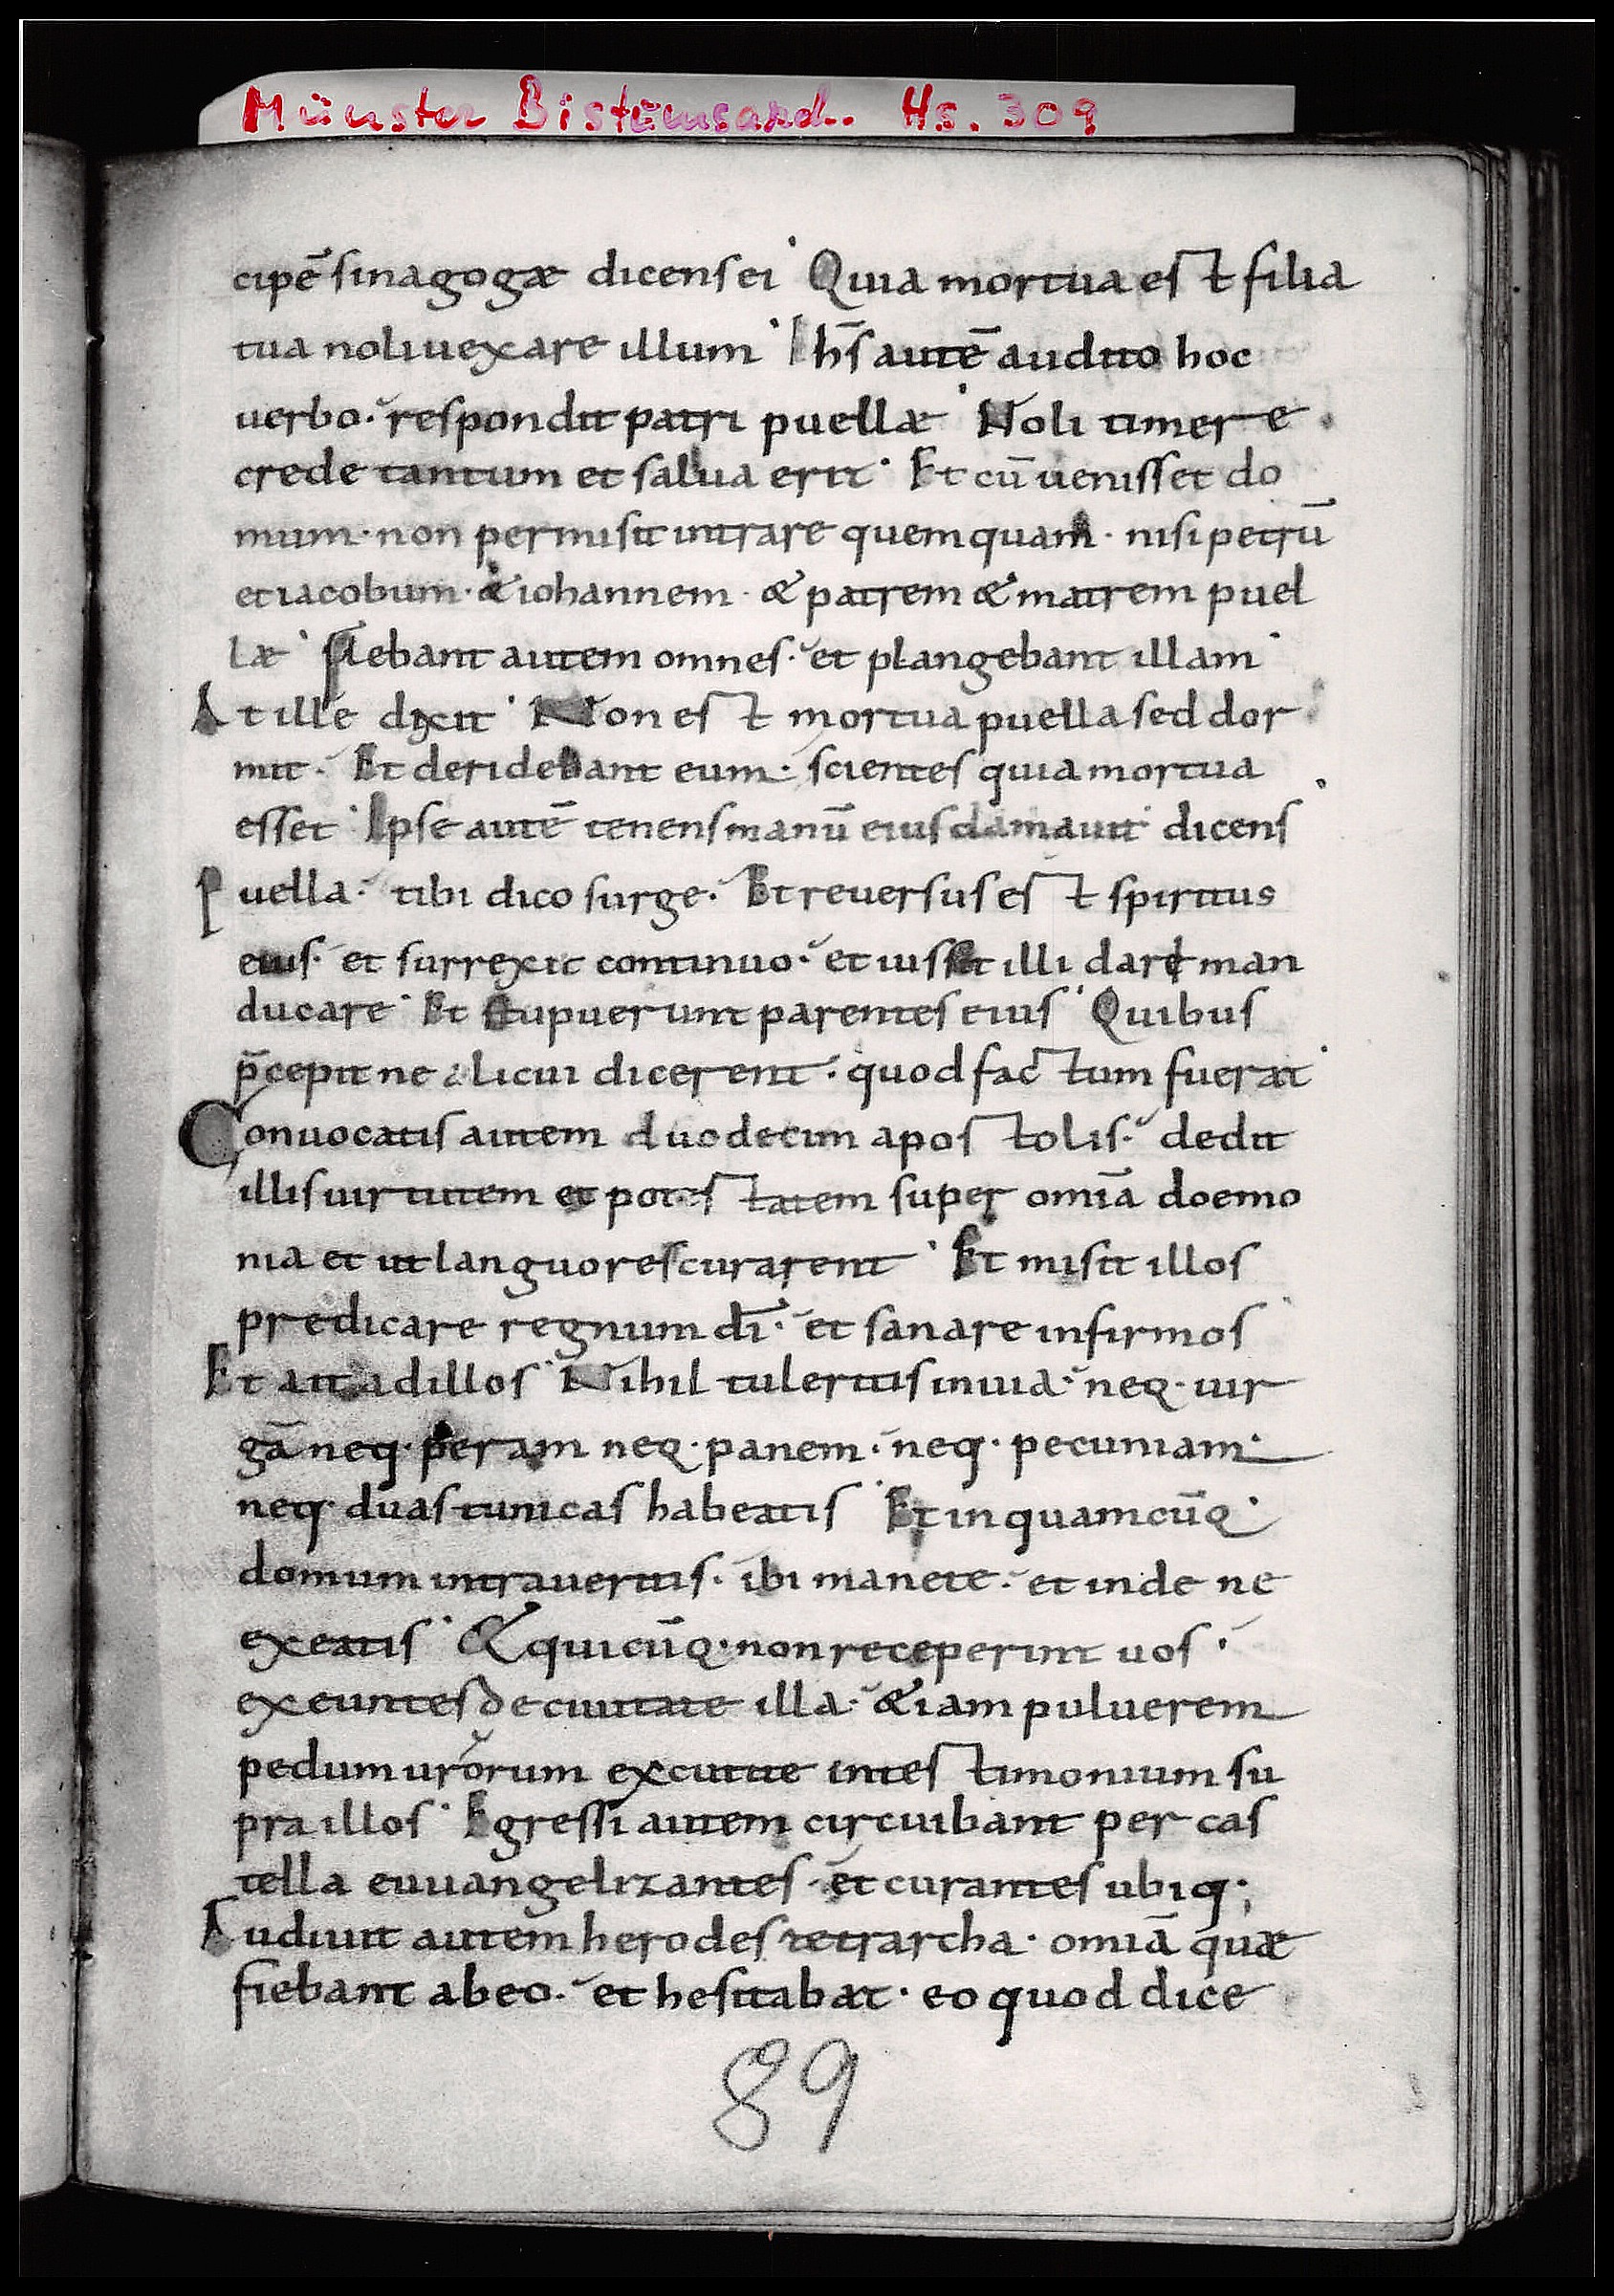 Münster Bistumsarch. Hs. 309
cipē sinagogæ dicens ei Quia mortua est filia
tua noli uexare illum Ihs̄ autē audito hoc
uerbo· respondit patri puellæ Noli timere
crede tantum et salua erit· Et cū uenisset do
mum· non permisit intrare quemquam· nisi petrū
et iacobum· & iohannem· & patrem & matrem puel
læ flebant autem omnes· et plangebant illam
At ille dixit Non est mortua puella sed dor
mit· Et deridebant eum· scientes quia mortua
esset Ipse autē tenens manū eius clamauit dicens
Puella· tibi dico surge· Et reuersus est spiritus
eius· et surrexit continuo· et iussit illi dari man
ducare Et stupuerunt parentes eius Quibus
p̄cepit ne alicui dicerent· quod factum fuerat
Conuocatis autem duodecim apostolis· dedit
illis uirtutem et potestatem super omīa doemo
nia et ut languores curarent Et misit illos
predicare regnum dī· et sanare infirmos
Et ait ad illos Nihil tuleritis in uia· neq· uir
gā neq· peram neq· panem· neq· pecuniam·
neq· duas tunicas habeatis Et in quamcūq·
domum intraueritis· ibi manete· et inde ne
exeatis & quicūq· non receperint uos·
exeuntes de ciuitate illa· &iam puluerem
pedum urorum excutite in testimonium su
pra illos Egressi autem circuibant per cas
tella euuangelizantes et curantes ubiq·
Audiuit autem herodes tetrarcha· omīa quæ
fiebant ab eo· et hesitabat· eo quod dice
89